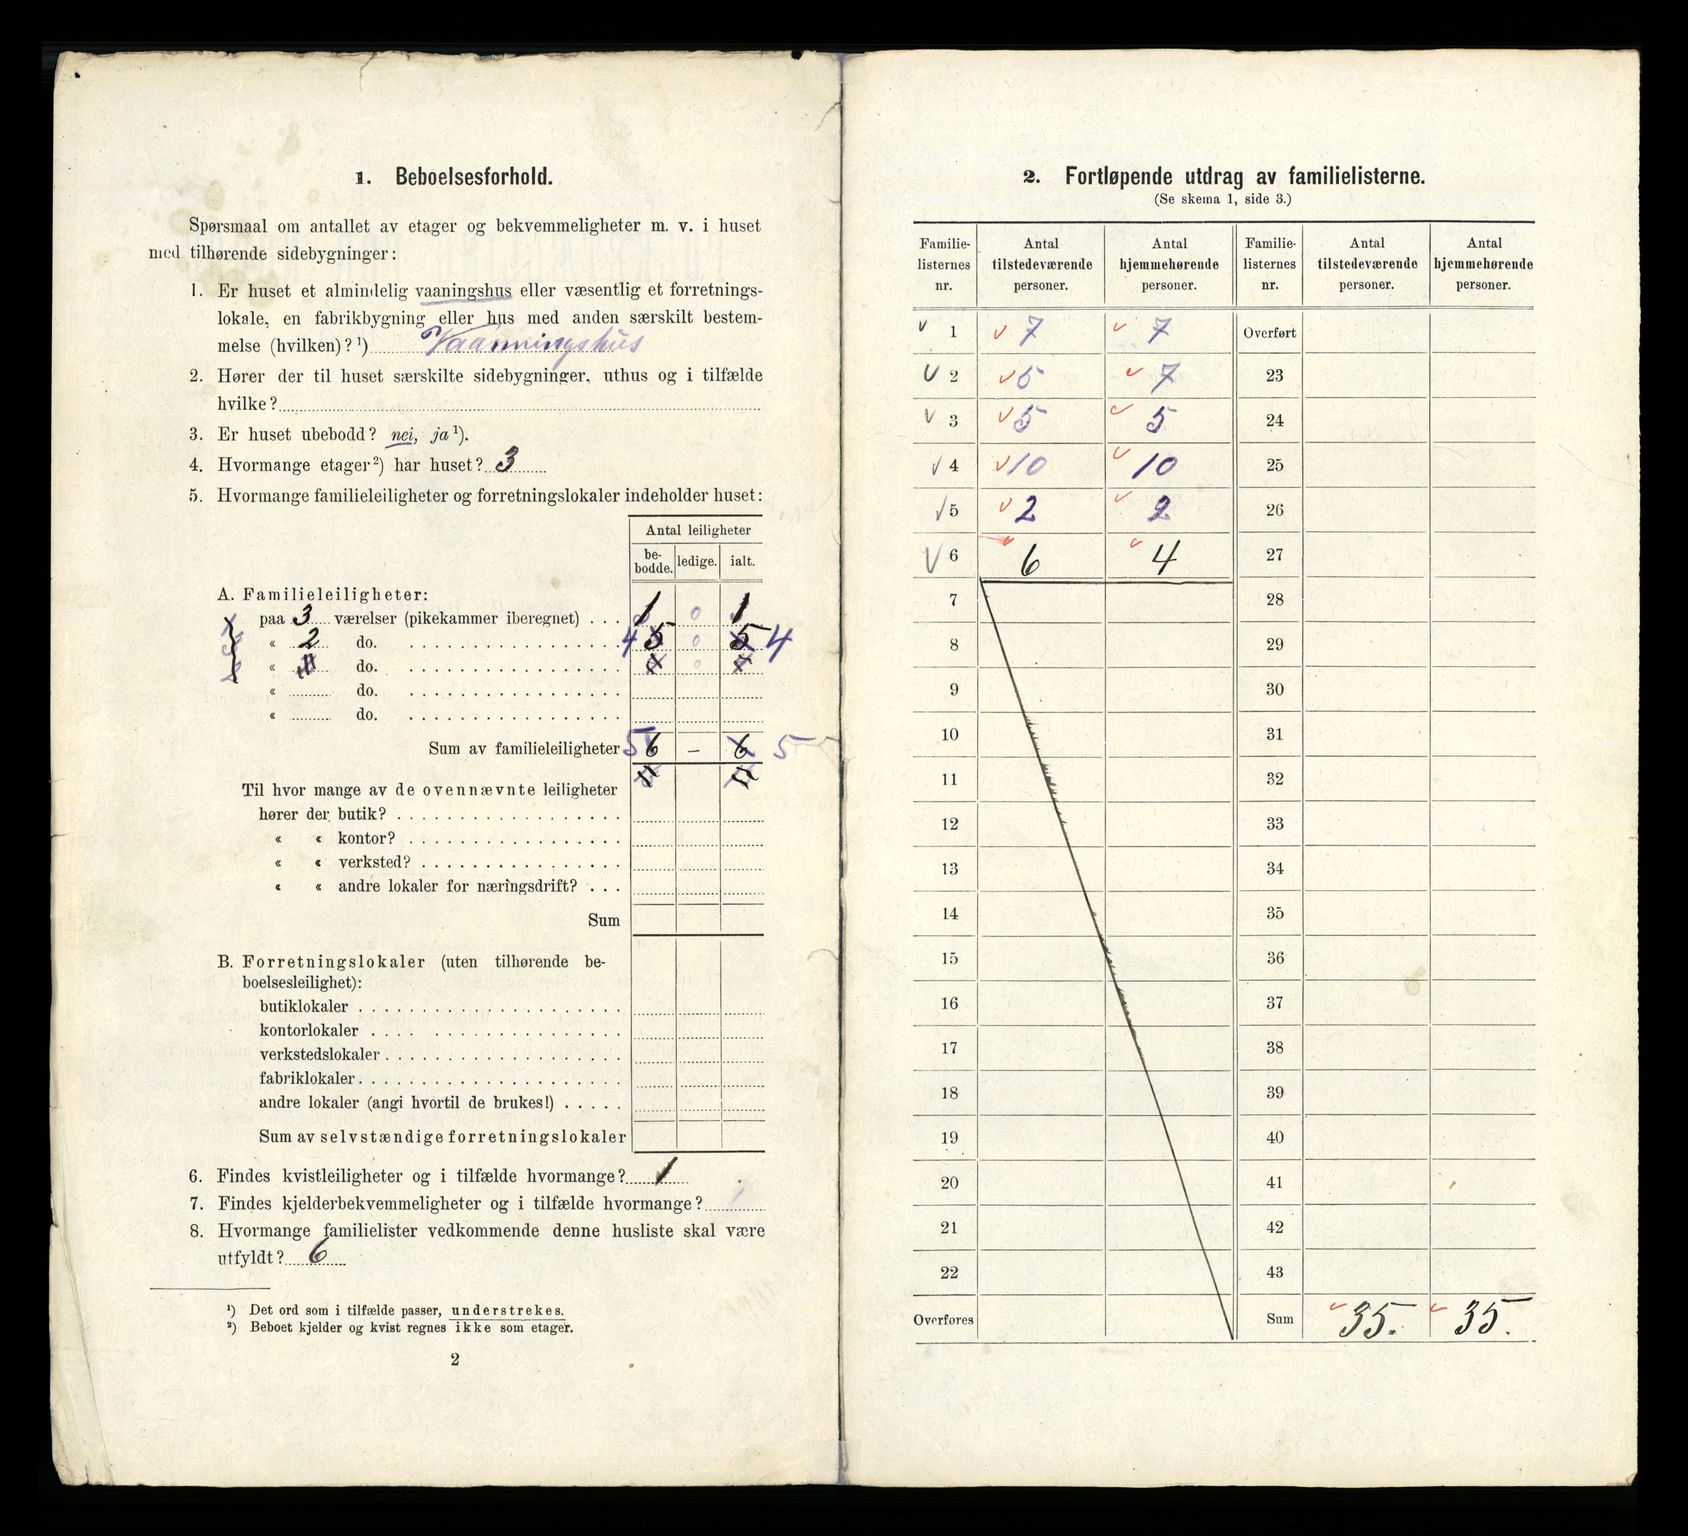 1. Beboelsesforhold.
Spørsmaal om antallet av etager og bekvemmeligheter m. v. i huset
med tilhørende sidebygninger:
1. Er huset et almindelig vaaningshus eller væsentlig et forretnings-
lokale, en fabrikbygning eller hus med anden særskilt bestem-
melse (hvilken)? ¹) Vaanningshus
2. Hører der til huset særskilte sidebygninger, uthus og i tilfælde
hvilke?
3. Er huset ubebodd? nei, ja ¹).
4. Hvormange etager ²) har huset? 3
5. Hvormange familieleiligheter og forretningslokaler indeholder huset:
Antal leiligheter
be-bodde. ledige. ialt.
A. Familieleiligheter:
paa 3 værelser (pikekammer iberegnet) . . . 1 0 1
« 2 do. 4 5 0 5 4
« do. x 0 x
« do.
« do.
Sum av familieleiligheter 5 6 – 6 5
Til hvor mange av de ovennævnte leiligheter
hører der butik?
« « kontor?
« « verksted?
« « andre lokaler for næringsdrift? . . .
Sum
B. Forretningslokaler (uten tilhørende be-
boelsesleilighet):
butiklokaler
kontorlokaler
verkstedslokaler
fabriklokaler
andre lokaler (angi hvortil de brukes!)
Sum av selvstændige forretningslokaler
6. Findes kvistleiligheter og i tilfælde hvormange? 1
7. Findes kjelderbekvemmeligheter og i tilfælde hvormange?
8. Hvormange familielister vedkommende denne husliste skal være
utfyldt? 6
¹) Det ord som i tilfælde passer, understrekes.
²) Beboet kjelder og kvist regnes ikke som etager.
2
2. Fortløpende utdrag av familielisterne.
(Se skema 1, side 3.)
Familie- Antal Antal Familie- Antal Antal
listernes tilstedeværende hjemmehørende listernes tilstedeværende hjemmehørende
nr. personer. personer. nr. personer. personer.
1 7 7 Overført
2 5 7 23
3 5 5 24
4 10 10 25
5 2 2 26
6 6 4 27
7 28
8 29
9 30
10 31
11 32
12 33
13 34
14 35
15 36
16 37
17 38
18 39
19 40
20 41
21 42
22 43
Overføres Sum 35. 35.